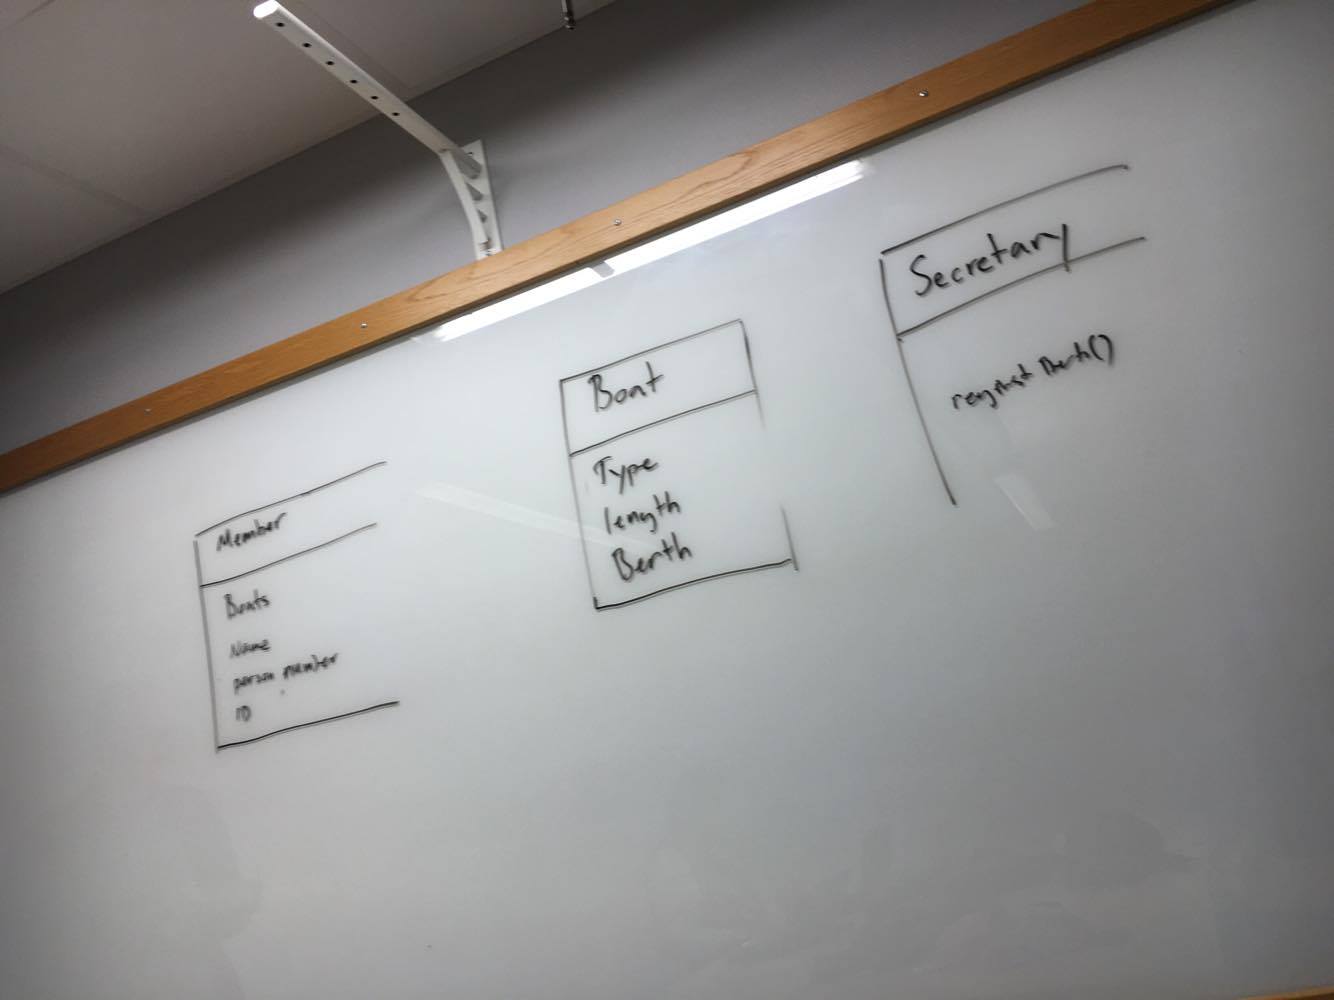 Member
Boats
Name
person number
ID
Boat
Type
length
Berth
Secretary
request Berth()